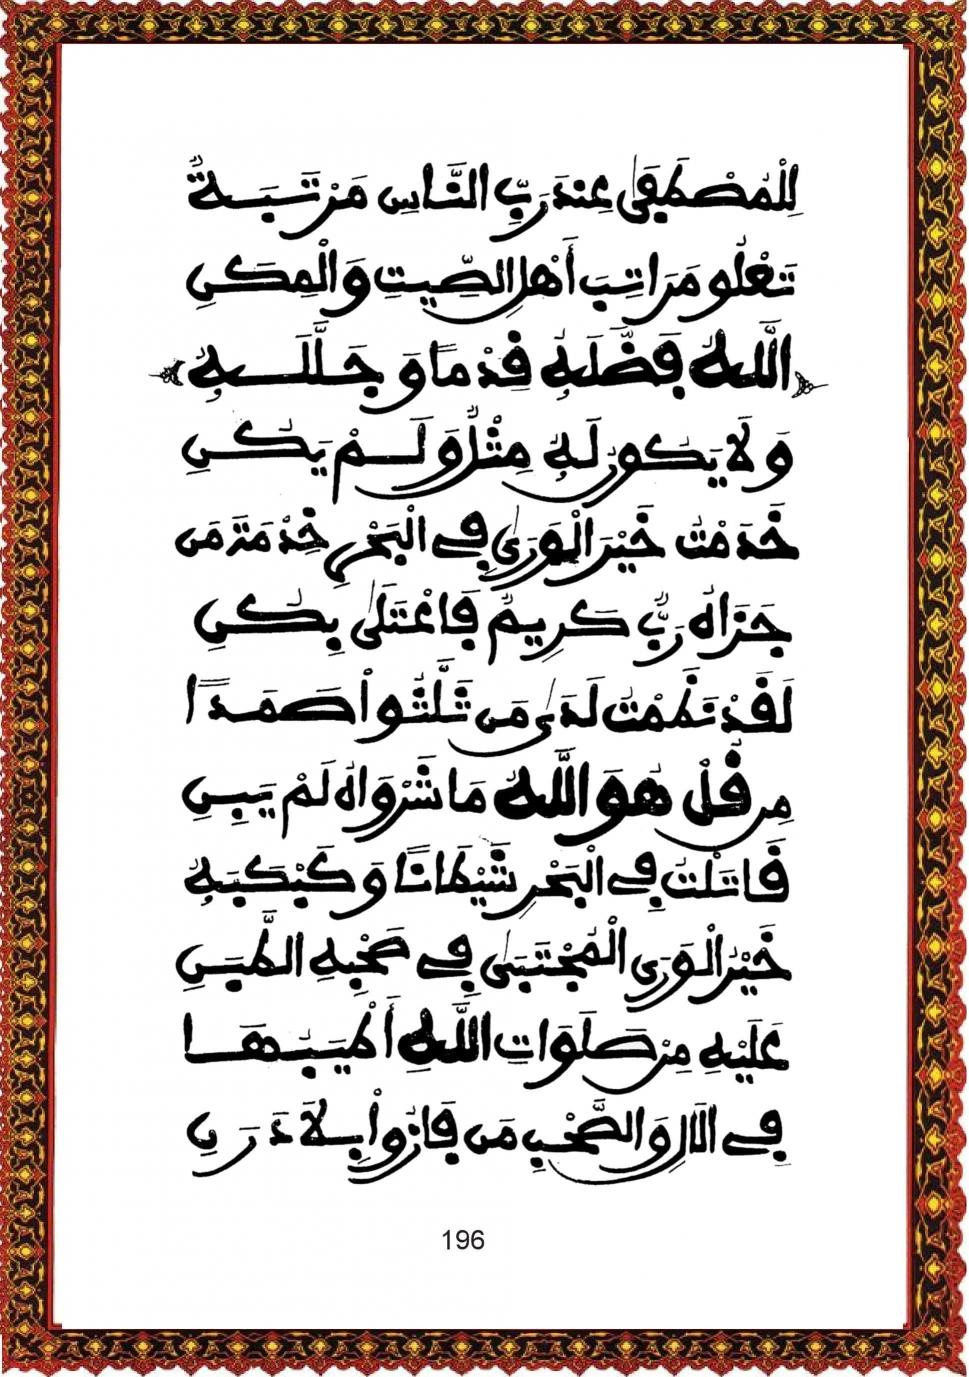 لِلْمُصْطَفَىٰ عِندَ رَبِّ النَّاسِ مَرْتَبَةٌ
تَعْلُو مَرَاتِبَ أَهْلِ الصِّيتِ وَالْمِكَنِ
اللَّهُ فَضَّلَهُ قِدْمًا وَجَلَّلَهُ
وَلَا يَكُونُ لَهُ مِثْلٌ وَلَمْ يَكُنِ
خَدَمْتُ خَيْرَ الْوَرَىٰ فِي الْبَحْرِ خِدْمَةَ مَن
جَزَاهُ رَبٌّ كَرِيمٌ فَاعْتَلَىٰ بِكُنِ
لَقَدْ نَظَمْتُ لَدَىٰ مَن ثَلَّثُوا صَمَدًا
مِن قُلْ هُوَ اللَّهُ مَا شَرْوَاهُ لَمْ يَبِنِ
قَاتَلْتُ فِي الْبَحْرِ شَيْطَانًا وَكَبْكَبَهُ
خَيْرُ الْوَرَى الْمُجْتَبَىٰ فِي صَحْبِهِ
عَلَيْهِ مِنْ صَلَوَاتِ اللَّهِ أَطْيَبُهَا
فِي الْآلِ وَالصَّحْبِ مَن فَازُوا بِلَا دَرَنِ
196